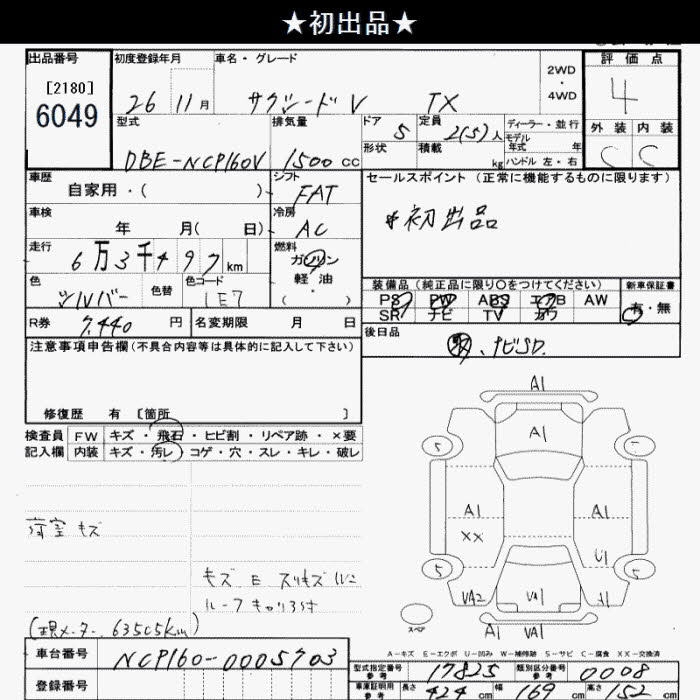 ★初出品★
出品番号 初度登録年月 車名・グレード 2WD・4WD 評価点
[2180]
6049
26 11月 サクシードV TX 4
型式 排気量 ドア 5 定員 2(5)人 ディーラー・並行 外装 内装
DBE-NCP160V 1500 cc 形状 積載 kg モデル年式 年 ハンドル 左・右 C C
車歴 シフト セールスポイント(正常に機能するものに限ります)
自家用・( ) FAT
車検 冷房 *初出品
年 月( 日) AC
走行 燃料
6万3千497km ガソリン
軽油
( ・ )
色 色替 色コード 装備品(純正品に限り〇をつけてください) 新車保証書
シルバー 1E7 PS PW ABS エアB AW 有・無
SR ナビ TV カワ
R券 7,440 円 名変期限 月 日 後日品
注意事項申告欄(不具合内容等は具体的に記入して下さい) 取、ナビSD.
修復歴 有 [箇所 ]
検査員 FW キズ・飛石・ヒビ割・リペア跡・×要
記入欄 内装 キズ・汚レ・コゲ・穴・スレ・キレ・破レ
A1
A1
5
A1 A1
XX
U1
5 5
VA2 VA1 A1
A1 VA1
スペア
荷室キズ
キズ E スリキズ
ルーフキャリア付
(現メーター 63505km)
A-キズ E-エクボ U-凹み W-補修跡 S-サビ C-腐食 XX-交換済
車台番号 NCP160-0005703
登録番号
型式指定番号 参考 17825 類別区分番号 参考 0008
車庫証明用 参考 長さ 424 cm 幅 169 cm 高さ 152 cm